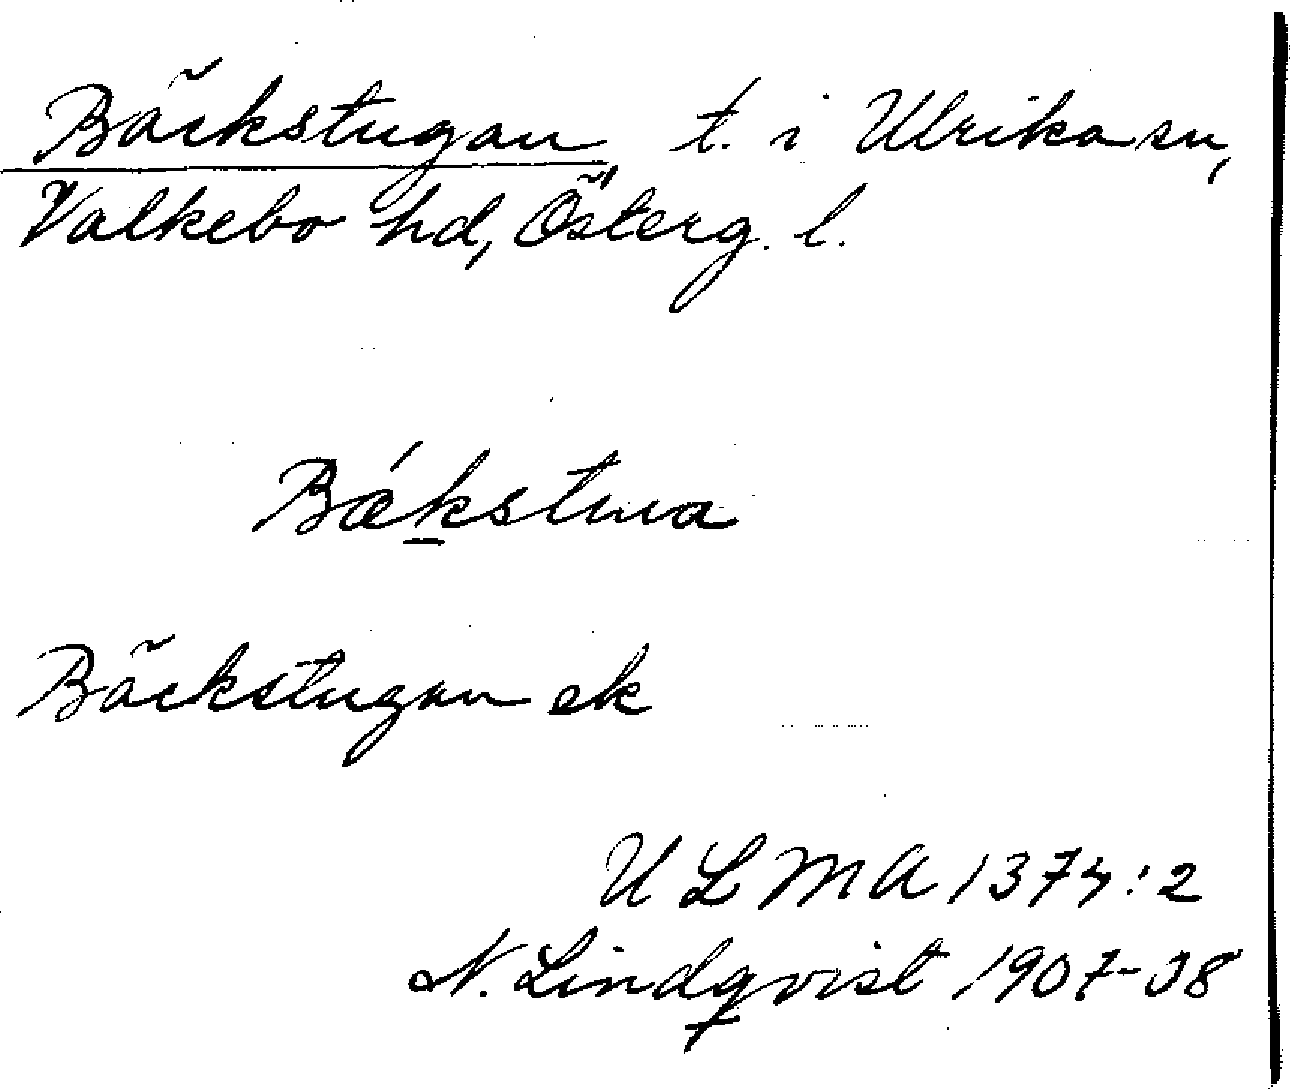 Bäckstugan t. i Ulrika sn,
Valkebo hd, Österg. l.
Bǽkstuva
Bäckstugan ek
ULMA 1374:2
N. Lindqvist 1907-08